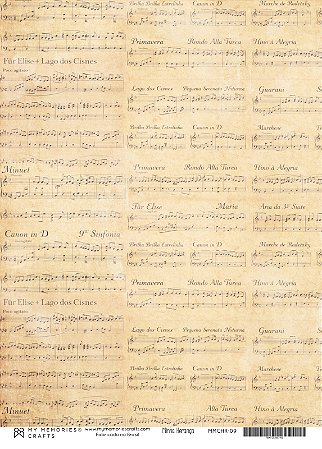 Brilha Brilha Estrelinha Canon in D Marcha de Radetzky
Primavera Rondo Alla Turca Hino à Alegria
Für Elise + Lago dos Cisnes
Poco agitato
Lago dos Cisnes Pequena Serenata Noturna Guarani
Brilha Brilha Estrelinha Canon in D Marchow
Minuet Primavera Rondo Alla Turca Hino à Alegria
Für Elise Maria Aria da 3ª Suite
Canon in D 9ª Sinfonia
Brilha Brilha Estrelinha Canon in D Marcha de Radetzky
Für Elise + Lago dos Cisnes Primavera Rondo Alla Turca Hino à Alegria
Poco agitato
Lago dos Cisnes Pequena Serenata Noturna Guarani
Brilha Brilha Estrelinha Canon in D Marcha de Radetzky
Minuet Primavera Rondo Alla Turca Hino à Alegria
MY MEMORIES CRAFTS
www.mymemoriescrafts.com
Fabricado no Brasil
Minha Herança
MMCMH-09